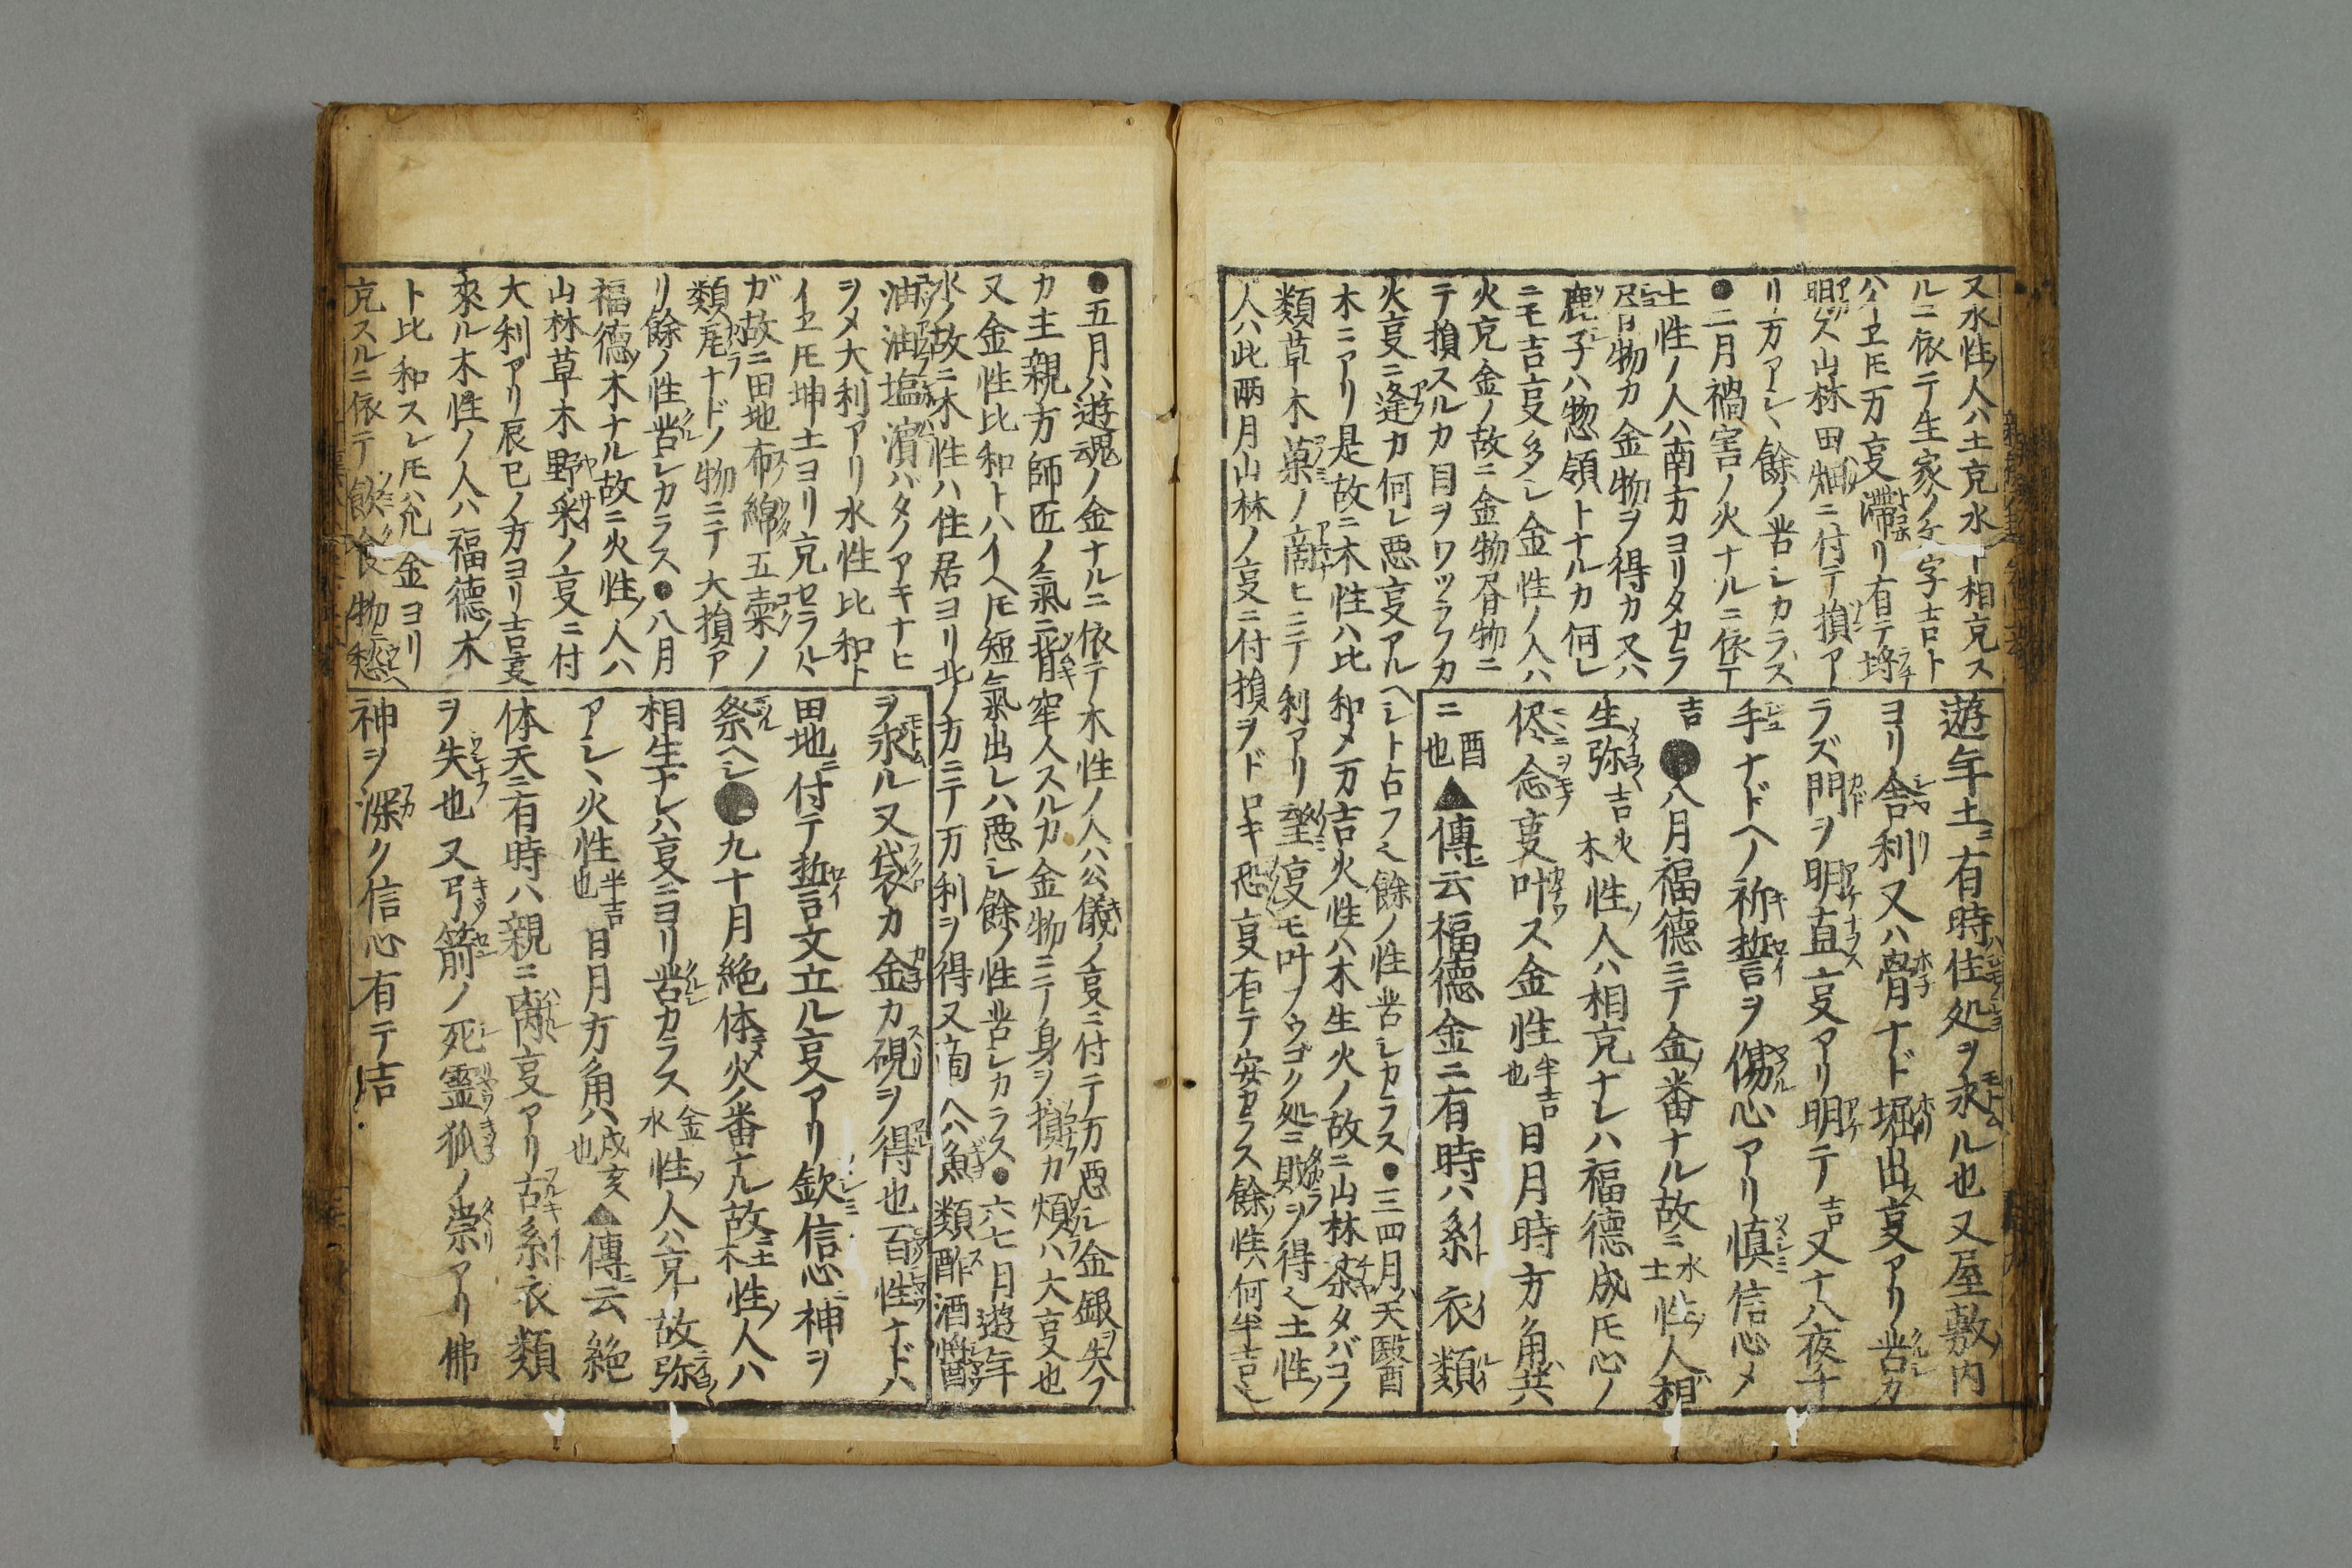 又水性ノ人ハ土克水ト相克ス
ルニ依テ生家ノ
ハイヱ𪜈万叓滞リ有テ埒
明ズ山林田畑ニ付テ損ア
リ万アシヽ餘ノ苦シカラズ
●二月禍害ノ火ナルニ依テ
土性ノ人ハ南方ヨリタカラ
物カ金物ヲ得カ又ハ
鹿子ハ惣領トナルカ何レ
ニモ吉叓多シ金性ノ人ハ
火克金ノ故ニ金物ニ
テ損スルカ目ヲワヅラフカ
火叓ニ逢カ何レ悪叓アルヘシト占フヘシ餘ノ性苦シカラス●三四月ハ天醫酉
木ニアリ是故ニ木性ハ比和メ万吉火性ハ木生火ノ故ニ山林茶タバコノ
類草木菓ノ商ヒニテ利アリ望叓モ叶フウゴク処ニ財ヲ得ヘシ土性ノ
人ハ此兩月山林ノ叓ニ付損ヲドロキ恐叓有テ安カラス餘ノ性ハ何半吉ヘシ
遊年土ニ有時住処ヲ求ル也又屋敷ノ内
ヨリ舎利又ハ骨ナド堀出ス叓アリ苦カ
ラズ門ヲ明直叓アリ明テ吉又十八夜十
手ナドヘノ祈誓ヲ傷心アリ慎信心メ
吉●八月福德ニテ金ノ番ナル故ニ水土性ノ人ハ相
生弥吉火木性ノ人ハ相克ナレハ福德成𪜈心ノ
侭ニ念叓叶ス金性半吉也日月時方角共ハ
ニ酉也▲傳ニ云福德金ニ有時ハ糸衣類
●五月ハ遊魂ノ金ナルニ依テ木性ノ人ハ公儀ノ叓ニ付テ万悪シ金銀ヲ失フ
カ主親方師匠ノ氣ニ背牢人スルカ金物ニテ身ヲ損カ煩ハ大叓也
又金性比和トハイヘ𪜈短氣出レハ悪シ餘ノ性苦シカラス●六七月遊年
水ノ故ニ木性ハ住居ヨリ北ノ方ニテ万利ヲ得又商ハ魚類酢酒醬
油油塩濱バタノアキナヒ
ヲメ大利アリ水性比和ト
イヱ𪜈坤土ヨリ克セラルヽ
ガ故ニ田地布綿五ノ
類尾ナドノ物ニテ大損ア
リ餘ノ性苦シカラス●八月
福德ノ木ナル故ニ火性ノ人ハ
山林草木野菜ノ叓ニ付
大利アリ辰巳ノ方ヨリ吉叓
來ル木性ノ人ハ福德ノ木
ト比和スレ𪜈兊金ヨリ
克スルニ依テ飲食物愁ヘ
ヲ求ル又袋カ金カ硯ヲ得也百性ナドハ
田地ニ付テ誓文立ル叓アリ欽信心ニ神ヲ
祭ヘシ●九十月絶体火ノ番ナル故ニ土木性ノ人ハ
相生ナレハ叓ニヨリ苦カラス金水性ノ人ハ克ナル故弥
アシヽ火性半吉也日月方角ハ戌亥也▲傳ニ云絶
体天ニ有時ハ親ニ離叓アリ古糸衣類
ヲ失也又弓箭ノ死霊狐ノ祟アリ佛
神ヲ深ク信心有テ吉